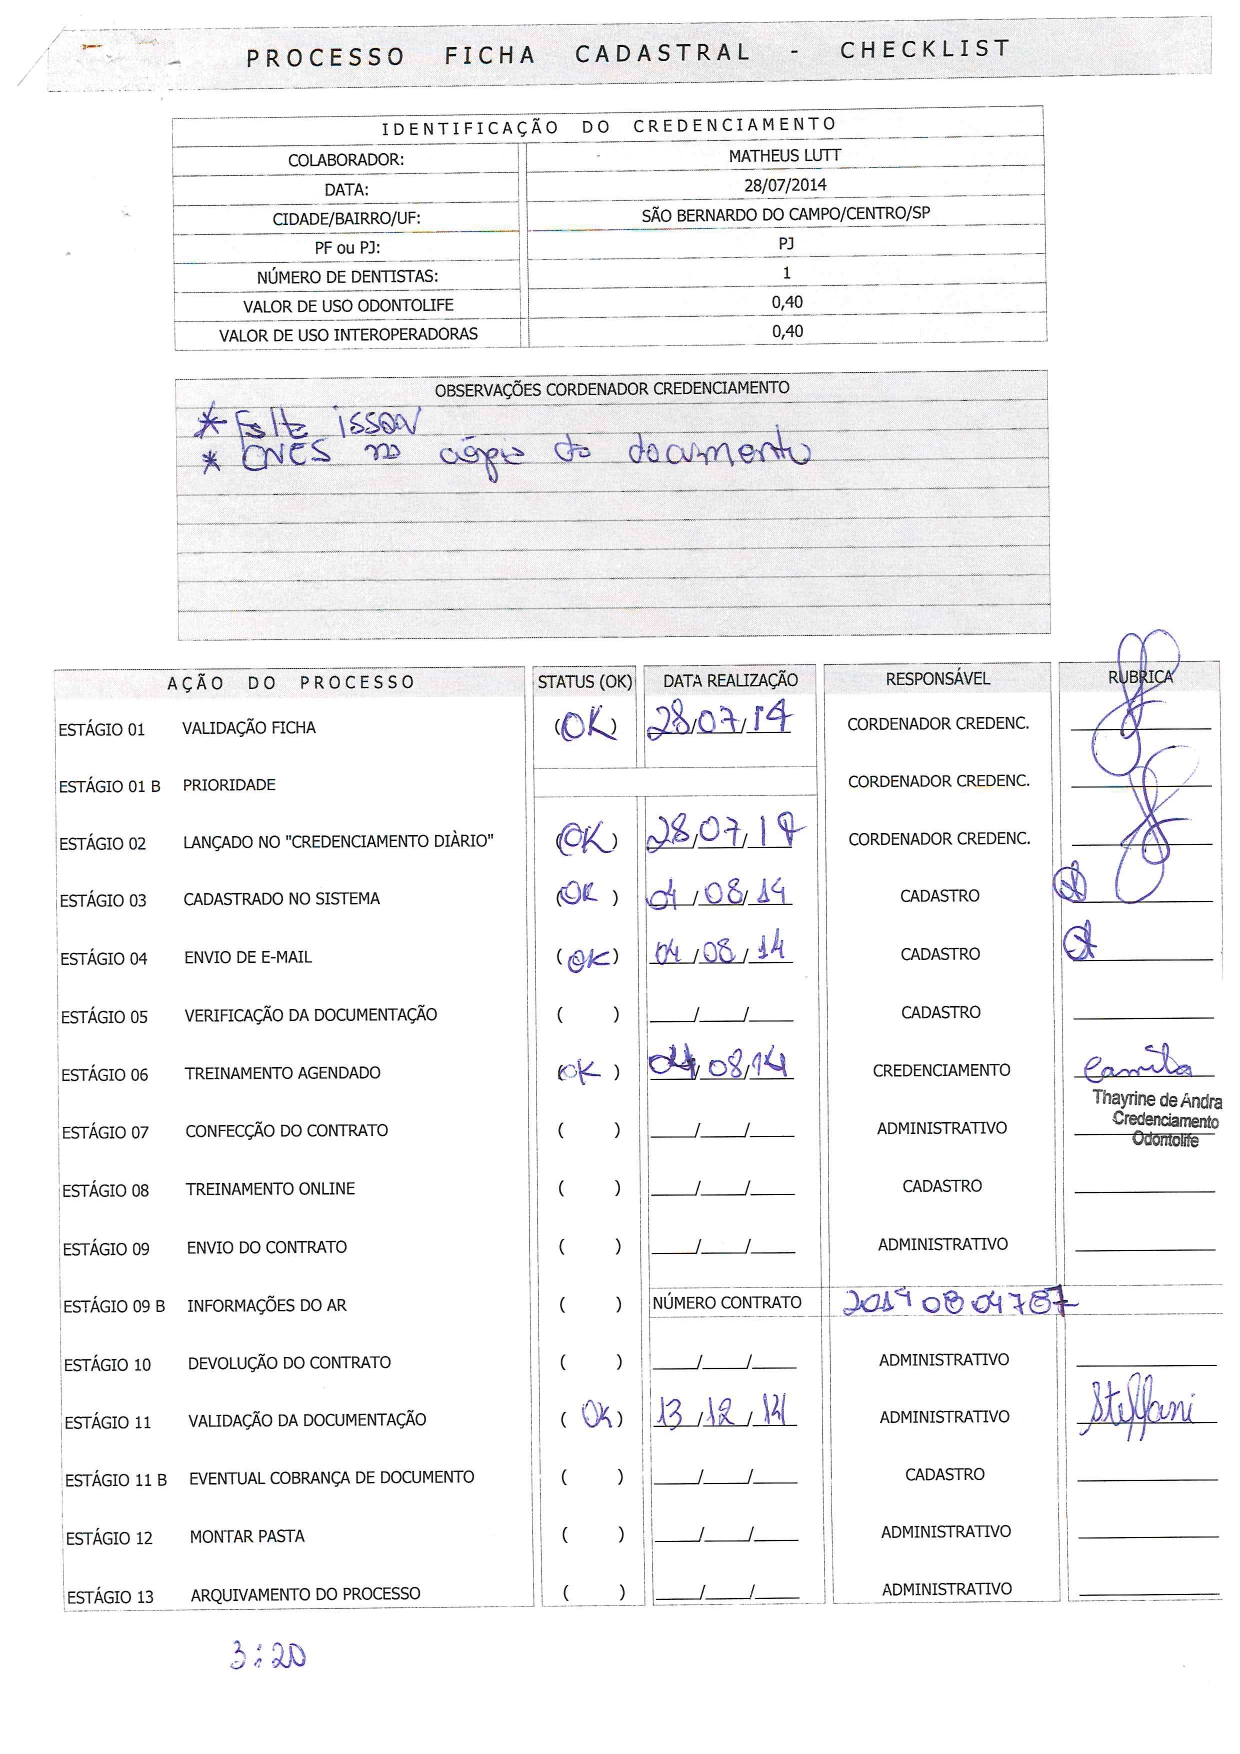 PROCESSO FICHA CADASTRAL - CHECKLIST
IDENTIFICAÇÃO DO CREDENCIAMENTO
COLABORADOR: MATHEUS LUTT
DATA: 28/07/2014
CIDADE/BAIRRO/UF: SÃO BERNARDO DO CAMPO/CENTRO/SP
PF ou PJ: PJ
NÚMERO DE DENTISTAS: 1
VALOR DE USO ODONTOLIFE 0,40
VALOR DE USO INTEROPERADORAS 0,40
OBSERVAÇÕES CORDENADOR CREDENCIAMENTO
* Falta issqn
* CNES na cópia do documento
AÇÃO DO PROCESSO STATUS (OK) DATA REALIZAÇÃO RESPONSÁVEL RUBRICA
ESTÁGIO 01 VALIDAÇÃO FICHA (OK) 28/07/14 CORDENADOR CREDENC.
ESTÁGIO 01 B PRIORIDADE CORDENADOR CREDENC.
ESTÁGIO 02 LANÇADO NO "CREDENCIAMENTO DIÀRIO" (OK) 28/07/14 CORDENADOR CREDENC.
ESTÁGIO 03 CADASTRADO NO SISTEMA (OK ) 04/08/14 CADASTRO
ESTÁGIO 04 ENVIO DE E-MAIL (OK) 04/08/14 CADASTRO
ESTÁGIO 05 VERIFICAÇÃO DA DOCUMENTAÇÃO ( ) ___/___/___ CADASTRO
ESTÁGIO 06 TREINAMENTO AGENDADO (OK ) 04/08/14 CREDENCIAMENTO Camila
Thayrine de Andra
Credenciamento
Odontolife
ESTÁGIO 07 CONFECÇÃO DO CONTRATO ( ) ___/___/___ ADMINISTRATIVO
ESTÁGIO 08 TREINAMENTO ONLINE ( ) ___/___/___ CADASTRO
ESTÁGIO 09 ENVIO DO CONTRATO ( ) ___/___/___ ADMINISTRATIVO
ESTÁGIO 09 B INFORMAÇÕES DO AR ( ) NÚMERO CONTRATO 20140804787
ESTÁGIO 10 DEVOLUÇÃO DO CONTRATO ( ) ___/___/___ ADMINISTRATIVO
ESTÁGIO 11 VALIDAÇÃO DA DOCUMENTAÇÃO ( OK) 13/12/14 ADMINISTRATIVO Steffani
ESTÁGIO 11 B EVENTUAL COBRANÇA DE DOCUMENTO ( ) ___/___/___ CADASTRO
ESTÁGIO 12 MONTAR PASTA ( ) ___/___/___ ADMINISTRATIVO
ESTÁGIO 13 ARQUIVAMENTO DO PROCESSO ( ) ___/___/___ ADMINISTRATIVO
3:20